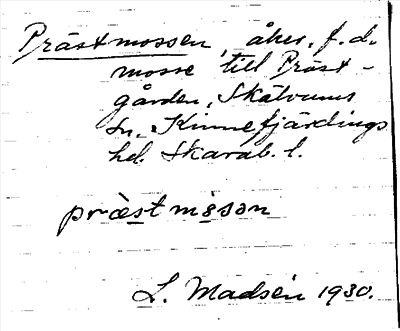 Prästmossen, åker, f.d.
mosse till Präst-
gården, Skälvums
sn, Kinnefjärdings
hd. Skarab. l.
præ̀stmɵsən
L. Madsén 1930.